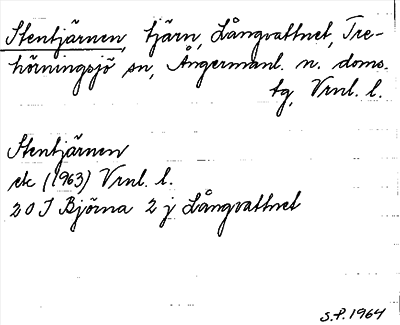 Stentjärnen, tjärn, Långvattnet, Tre-
hörningsjö sn, Ångermanl. n. doms.
tg, Vrnl. l.
Stentjärnen
ek (1963) Vrnl. l.
20 I Björna 2 j Långvattnet
S.P. 1964